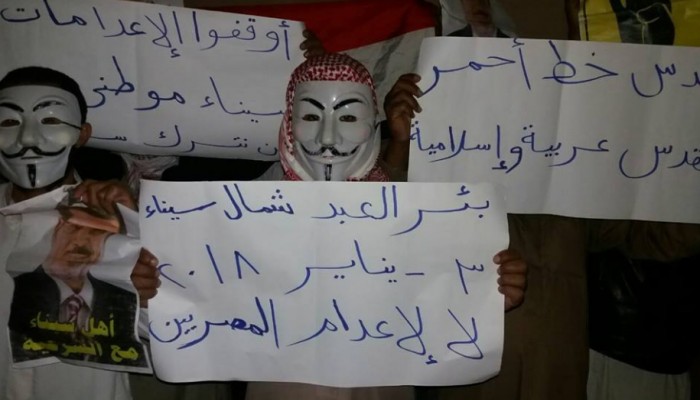 أوقفوا الإعدامات
سيناء موطني
لن نترك سـ
ـدس خط أحمر
ـقدس عربية وإسلامية
بئر العبد شمال سيناء
٣ - يناير ٢٠١٨
لا لإعدام المصريين
أهل سيناء
مع الشرعية